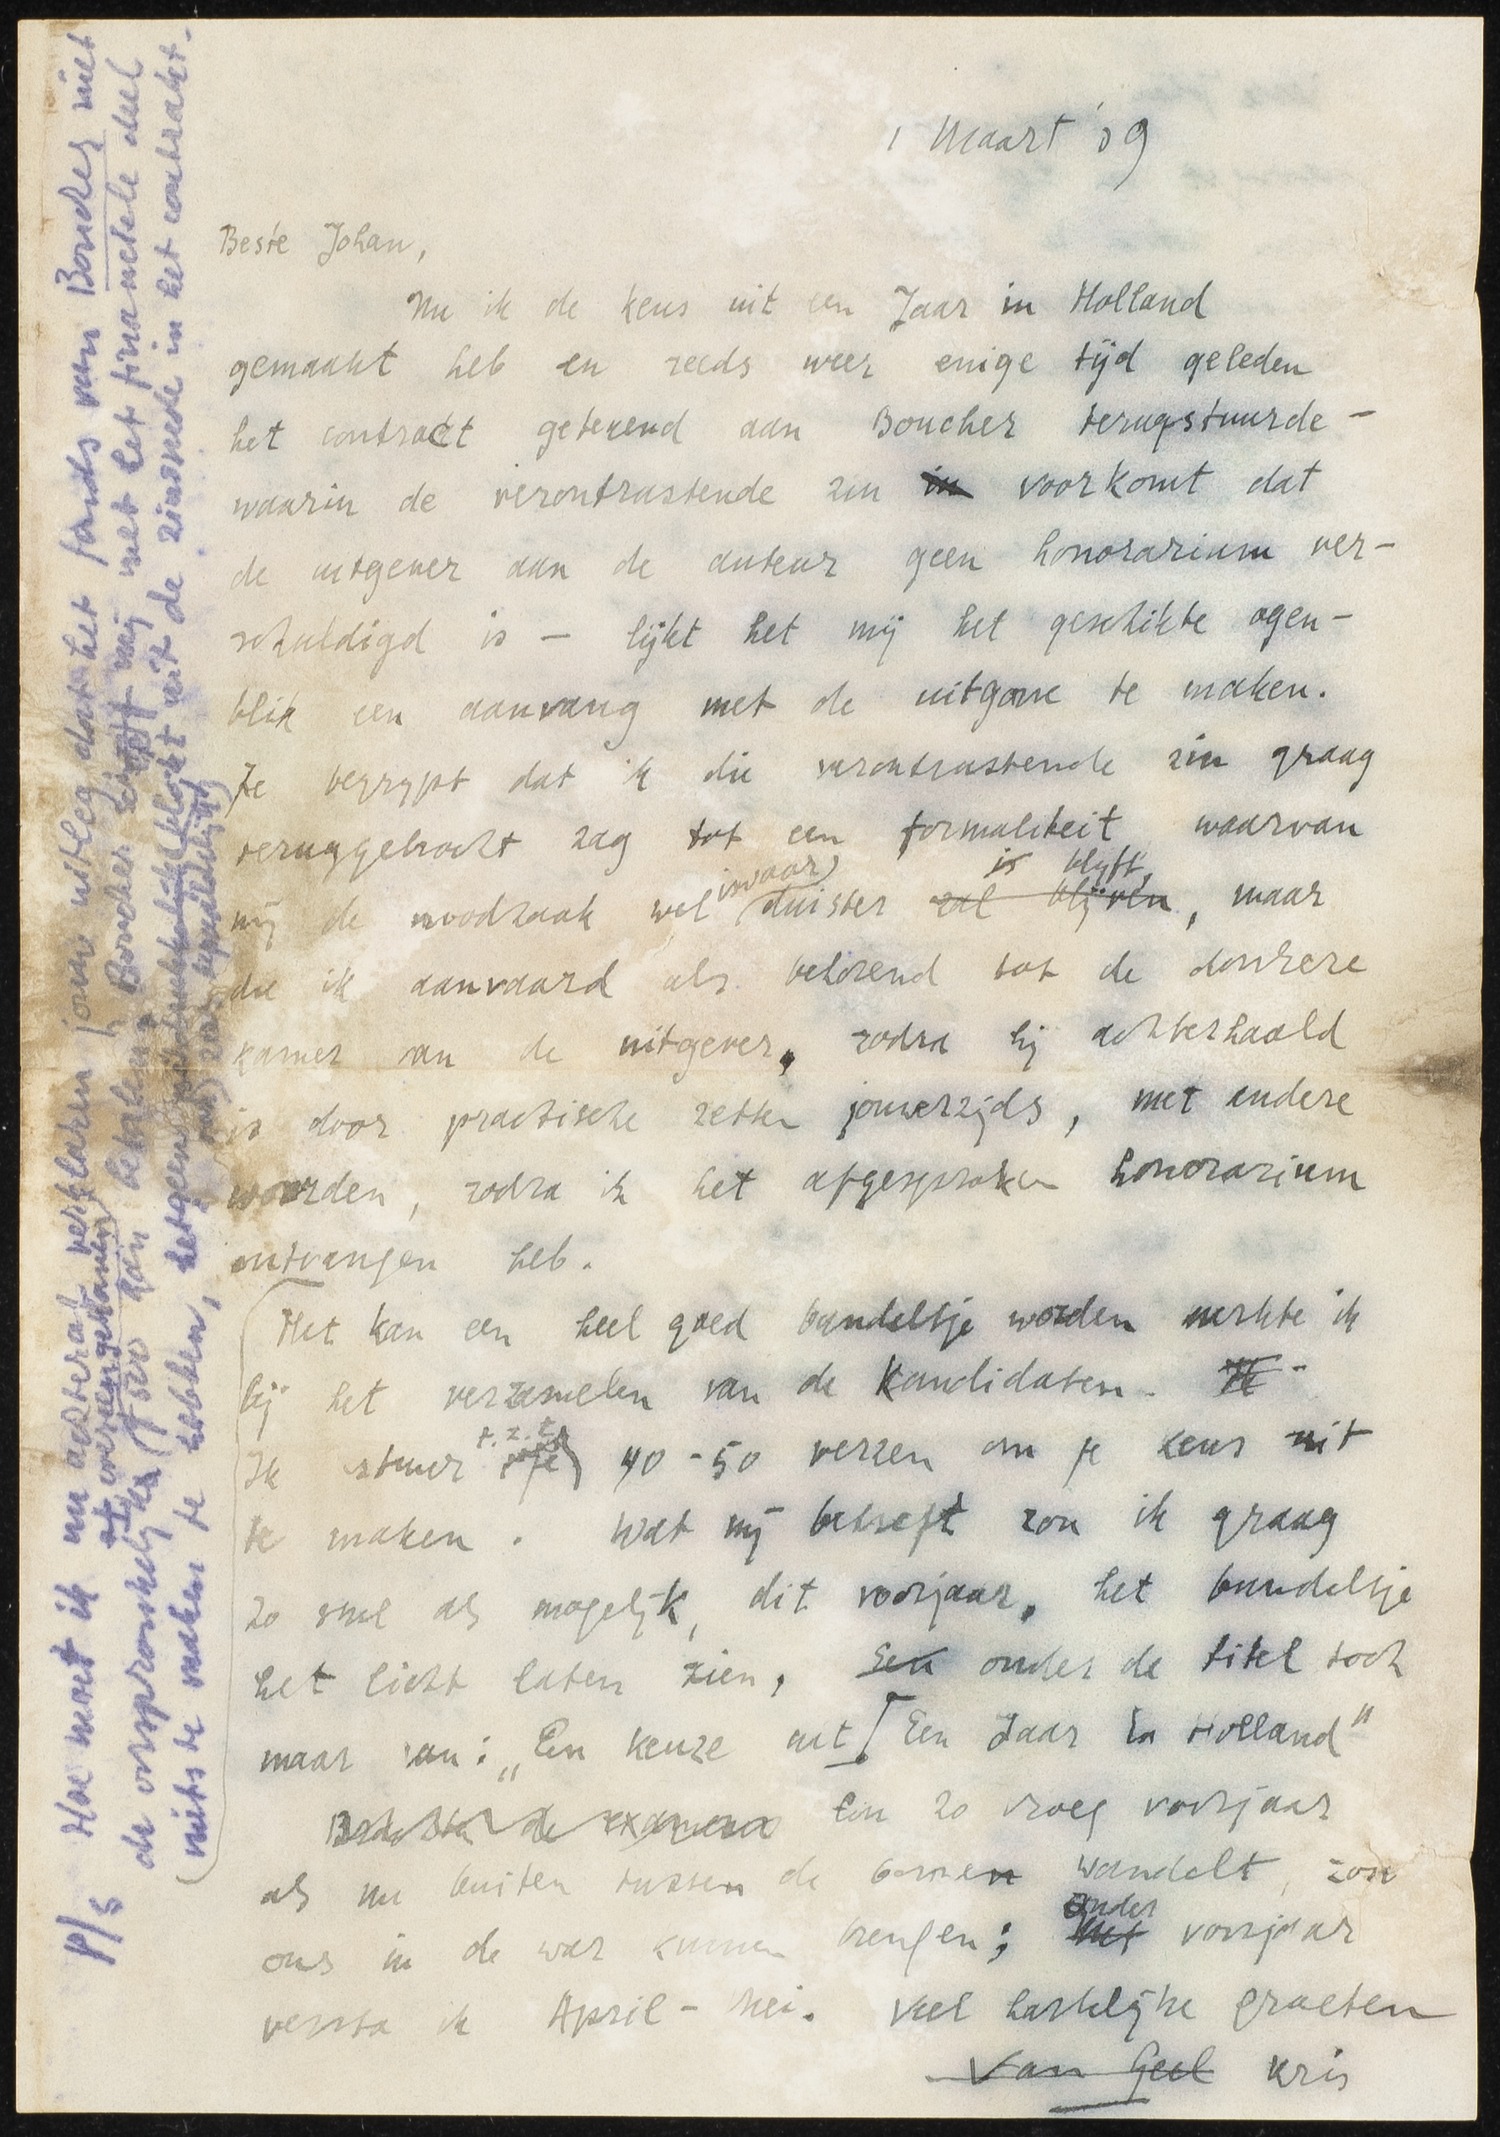 1 Maart '39
Beste Johan,
Nu ik de keus uit een Jaar in Holland
gemaakt heb en reeds weer enige tijd geleden
het contract getekend aan Boucher terugstuurde –
waarin de verontrustende zin in voorkomt dat
de uitgever aan de auteur geen honorarium ver-
schuldigd is – lijkt het mij het geschikte ogen-
blik een aanvang met de uitgave te maken.
Je begrypt dat ik die verontrustende zin graag
teruggebracht zag tot een formaliteit waarvan
is blyft,
mij de noodzaak wel duister zal blijven, maar
die ik aanvaard als behorend tot de donkere
kamer van de uitgever, zodra hij achterhaald
is door practische zetten jouwerzijds, met andere
woorden, zodra ik het afgesproken honorarium
ontvangen heb.
Het kan een heel goed bundeltje worden merkte ik
bij het verzamelen van de kandidaten. Ik
t.z.t.
Ik stuur je 40-50 verzen om je keus uit
te maken. Wat mij betreft zou ik graag
zo snel als mogelijk, dit voorjaar, het bundeltje
het licht laten zien, Een onder de titel toch
maar van: „Een keuze uit [Een Jaar in Holland"
de examens Een zo vroeg voorjaar
als nu buiten tussen de bomen wandelt, zou
ander
ons in de war kunnen brengen; het voorjaar
versta ik April – Mei. Veel hartelijke groeten
Van Geel Kris
P/S Hoe moet ik nu achteraf verklaren jouw uitleg dat het fonds van Boucher niet
overeengekomen
de oorspronkelijke f 500 kan betalen? Boucher schrijft mij met het financiele deel
niets te maken te hebben, hetgeen blijkt uit de zinsnede in het contract.